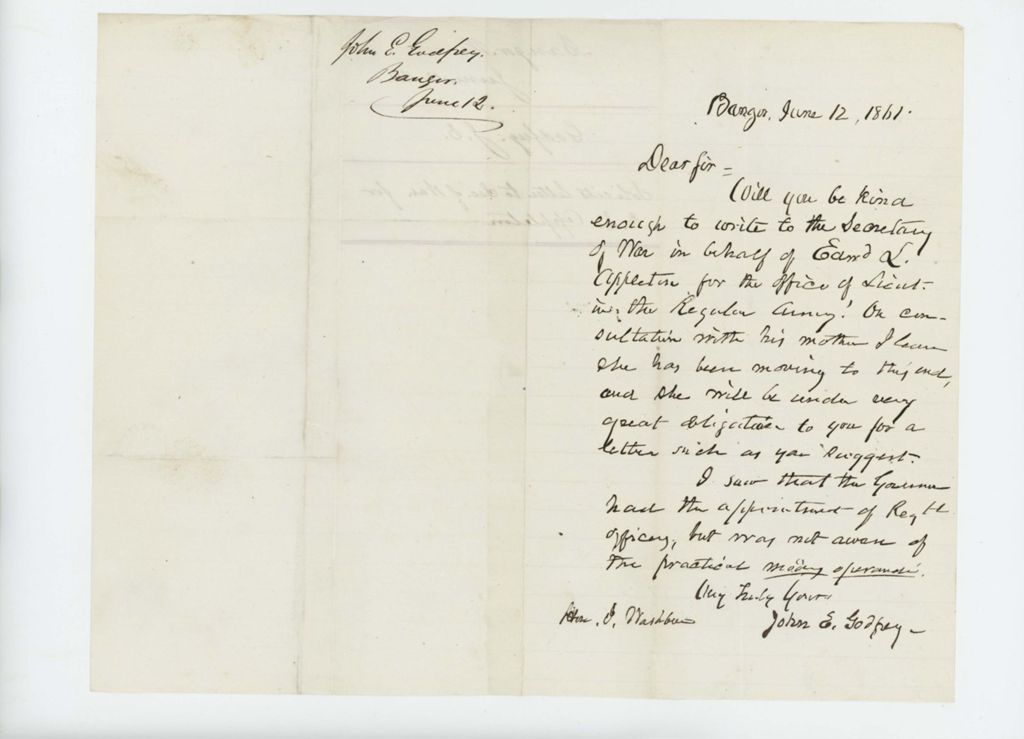 John E. Godfrey.
Bangor.
June 12.
Bangor, June 12, 1861.
Dear Sir =
Will you be kind
enough to write to the Secretary
of War in behalf of Edwd L.
Appleton for the office of Lieut.
in the Regular Army? On con-
sultation with his mother I learn
she has been moving to this end,
and she will be under very
great obligation to you for a
letter such as you suggest.
I saw that the Governor
had the appointment of Regtl
officers, but was not aware of
the practical modus operandi.
Very truly yours
John E. Godfrey
Hon. I. Washburn